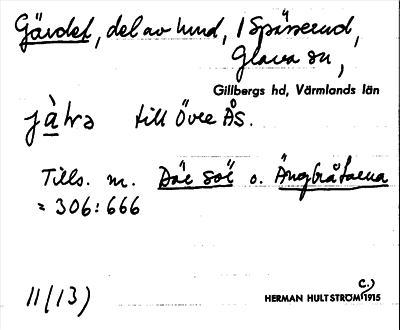 Gärdet, del av hmd, 1 Spässerud,
Glava sn,
Gillbergs hd, Värmlands län
till Övre Ås.
Tills. m. o.
= 306:666
11(13)
C.)
HERMAN HULTSTRÖM 1915